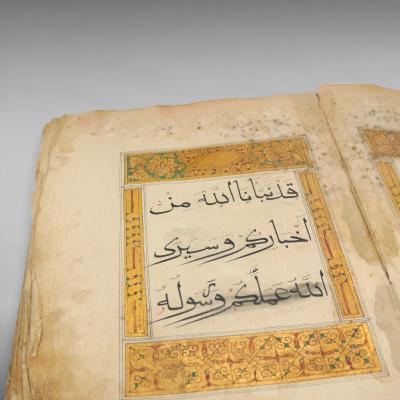 قد نبانا الله من
اخباركم وسيرى
الله عملكم ورسوله